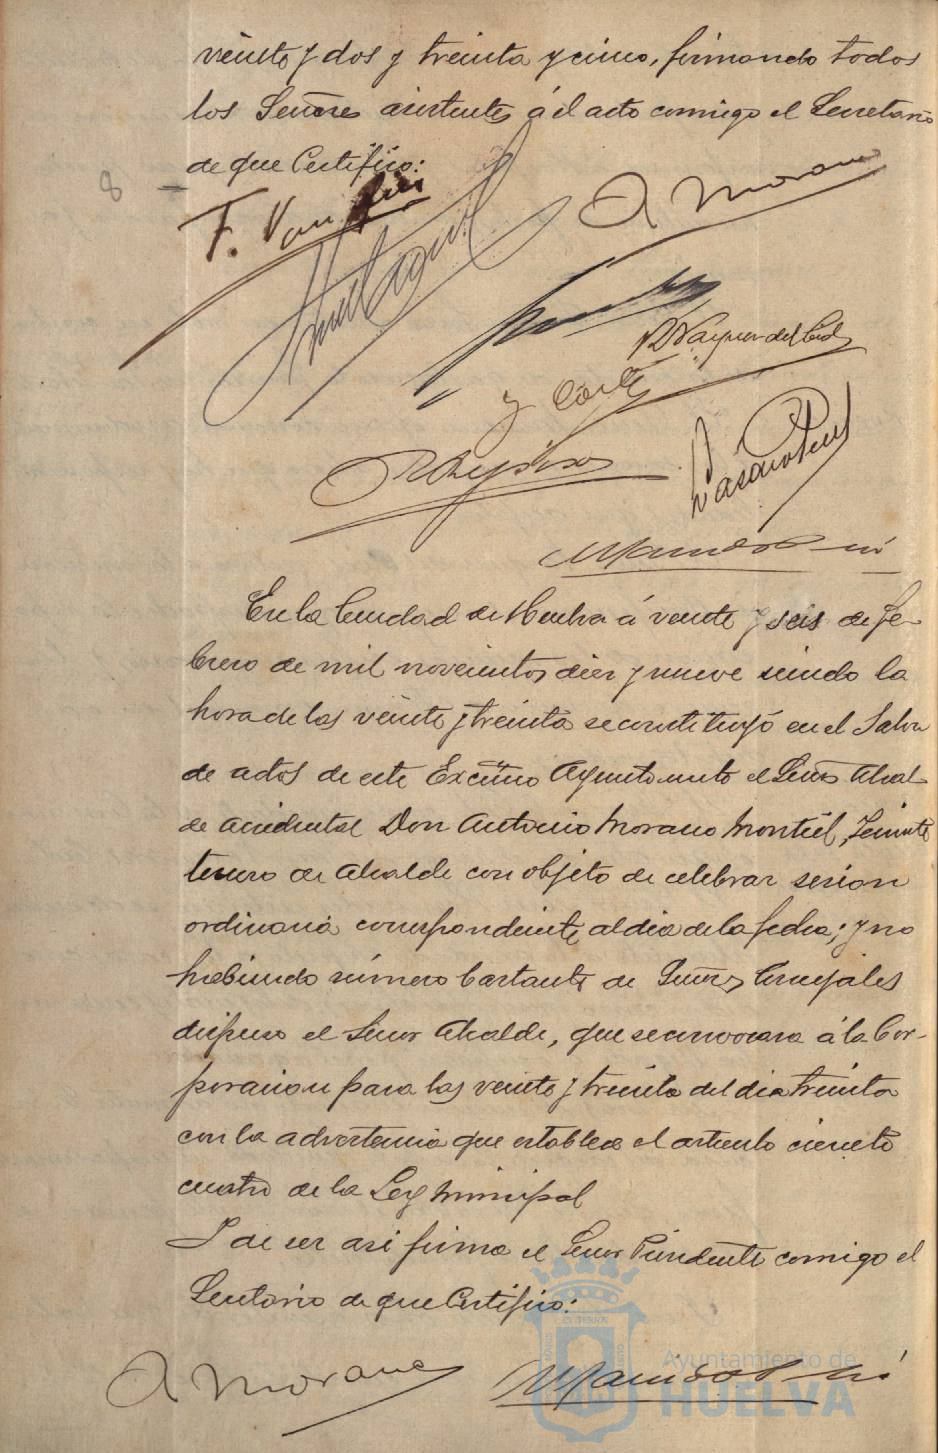 veinte y dos y treinta y cinco, firmando todos
los Señores asistentes á el acto comigo el Secretario
de que Certifico:
8
F.
A Morano
y
En la Ciudad de Huelva á veinte y seis de Fe-
brero de mil novecientos diez y nueve siendo la
hora de las veinte y treinta se constituyó en el Salon
de actos de este Excmo Ayuntamiento el Señor Alcal-
de accidental Don Antonio Morano Montiel, Teniente
tercero de Alcalde con objeto de celebrar sesion
ordinaria correspondiente al dia de la fecha; y no
habiendo número bastante de Señores Concejales
dispuso el Señor Alcalde, que se convocara á la Cor-
poracion para las veinte y treinta del dia treinta
con la advertencia que establece el articulo ciento
cuatro de la Ley Municipal
Y de ser asi firma el Señor Presidente comigo el
Secretario de que Certifico:
A Morano
Ayuntamiento de
HUELVA